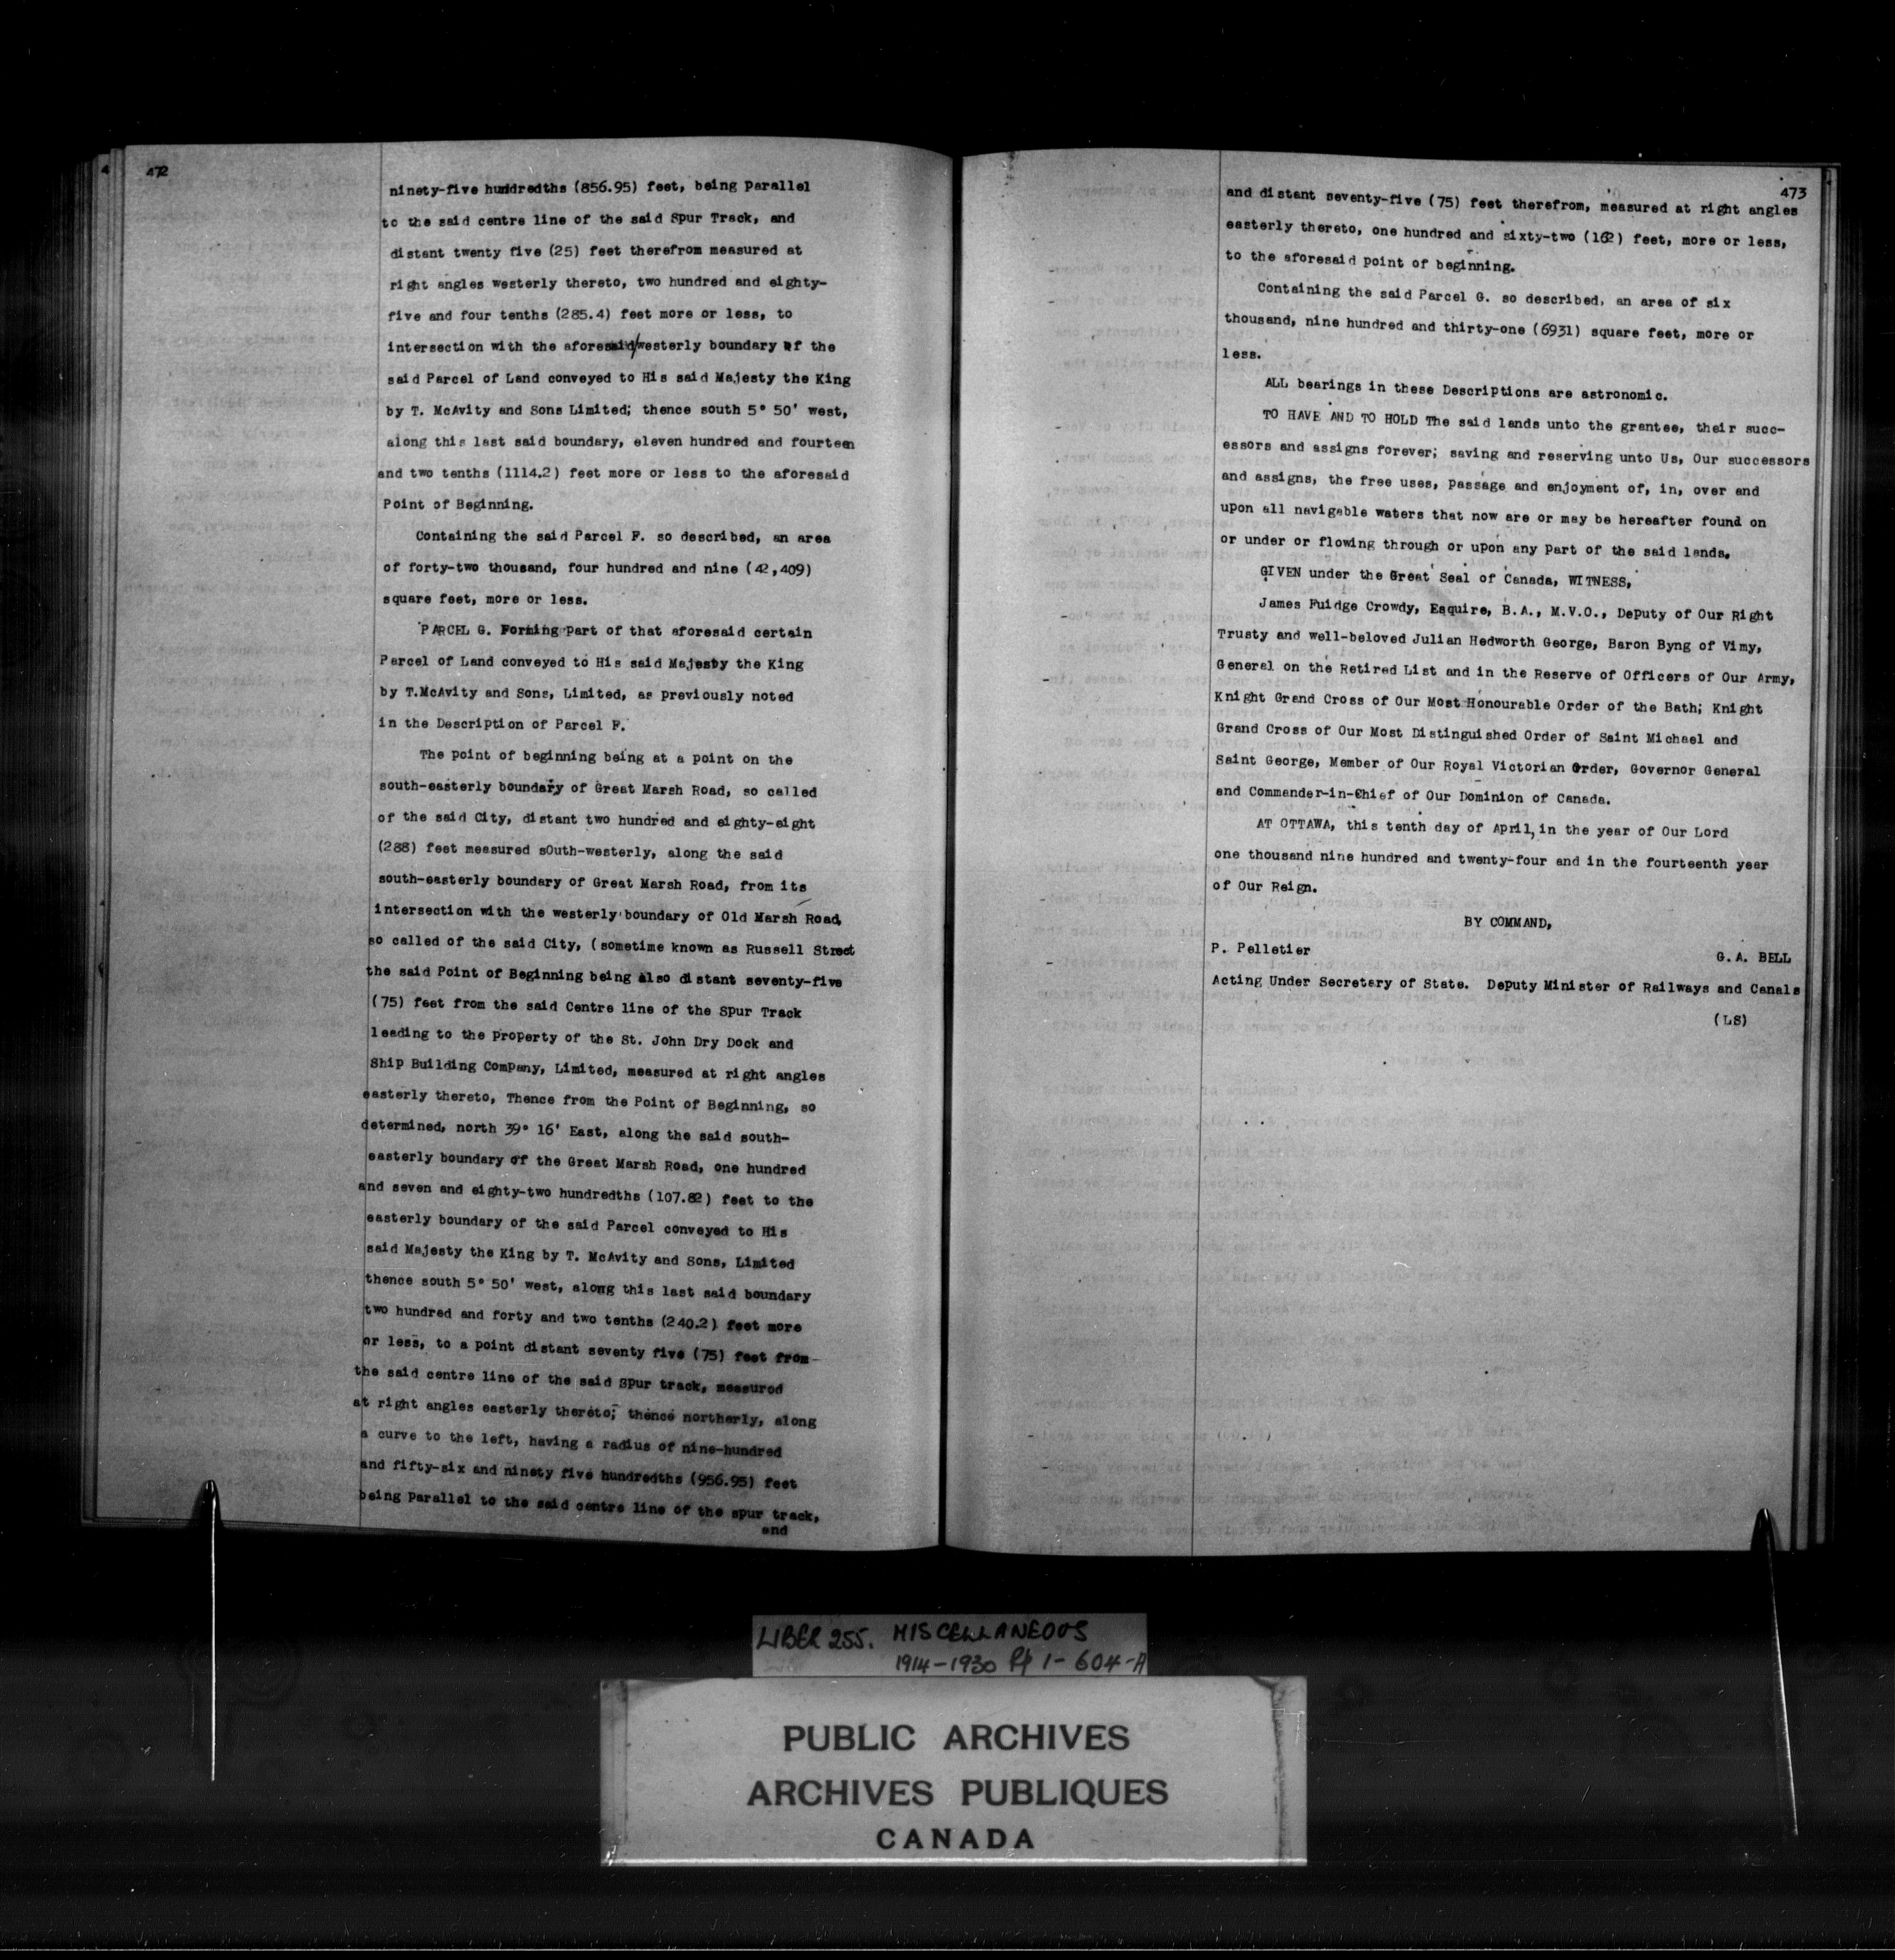 472
ninety-five hundredths (856.95) feet, being parallel
to the said centre line of the said Spur Track, and
distant twenty five (25) feet therefrom measured at
right angles westerly thereto, two hundred and eighty-
five and four tenths (285.4) feet more or less, to
intersection with the aforesaid/westerly boundary of the
said Parcel of Land conveyed to His said Majesty the King
by T. McAvity and Sons Limited; thence south 5° 50' west,
along this last said boundary, eleven hundred and fourteen
and two tenths (1114.2) feet more or less to the aforesaid
Point of Beginning.
Containing the said Parcel F. so described, an area
of forty-two thousand, four hundred and nine (42,409)
square feet, more or less.
PARCEL G. Forming part of that aforesaid certain
Parcel of Land conveyed to His said Majesty the King
by T.McAvity and Sons, Limited, as previously noted
in the Description of Parcel F.
The point of beginning being at a point on the
south-easterly boundary of Great Marsh Road, so called
of the said City, distant two hundred and eighty-eight
(288) feet measured sOuth-westerly, along the said
south-easterly boundary of Great Marsh Road, from its
intersection with the westerly boundary of Old Marsh Road,
so called of the said City, (sometime known as Russell Street
the said Point of Beginning being also distant seventy-five
(75) feet from the said Centre line of the Spur Track
leading to the property of the St. John Dry Dock and
Ship Building Company, Limited, measured at right angles
easterly thereto, Thence from the Point of Beginning, so
determined, north 39° 16' East, along the said south-
easterly boundary of the Great Marsh Road, one hundred
and seven and eighty-two hundredths (107.82) feet to the
easterly boundary of the said Parcel conveyed to His
said Majesty the King by T. McAvity and Sons, Limited
thence south 5° 50' west, along this last said boundary
two hundred and forty and two tenths (240.2) feet more
or less, to a point distant seventy five (75) feet from
the said centre line of the said Spur track, measured
at right angles easterly thereto; thence northerly, along
a curve to the left, having a radius of nine-hundred
and fifty-six and ninety five hundredths (956.95) feet
being Parallel to the said centre line of the spur track,
and
473
and distant seventy-five (75) feet therefrom, measured at right angles
easterly thereto, one hundred and sixty-two (162) feet, more or less,
to the aforesaid point of beginning.
Containing the said Parcel G. so described, an area of six
thousand, nine hundred and thirty-one (6931) square feet, more or
less.
ALL bearings in these Descriptions are astronomic.
TO HAVE AND TO HOLD The said lands unto the grantee, their succ-
essors and assigns forever; saving and reserving unto Us, Our successors
and assigns, the free uses, passage and enjoyment of, in, over and
upon all navigable waters that now are or may be hereafter found on
or under or flowing through or upon any part of the said lands.
GIVEN under the Great Seal of Canada, WITNESS,
James Fuidge Crowdy, Esquire, B.A., M.V.O., Deputy of Our Right
Trusty and well-beloved Julian Hedworth George, Baron Byng of Vimy,
General on the Retired List and in the Reserve of Officers of Our Army,
Knight Grand Cross of Our Most Honourable Order of the Bath; Knight
Grand Cross of Our Most Distinguished Order of Saint Michael and
Saint George, Member of Our Royal Victorian Order, Governor General
and Commander-in-Chief of Our Dominion of Canada.
AT OTTAWA, this tenth day of April, in the year of Our Lord
one thousand nine hundred and twenty-four and in the fourteenth year
of Our Reign.
BY COMMAND,
P. Pelletier G.A. BELL
Acting Under Secretary of State. Deputy Minister of Railways and Canals
(LS)
LIBER 255. MISCELLANEOUS
1914-1930 Pp 1-604-A
PUBLIC ARCHIVES
ARCHIVES PUBLIQUES
CANADA